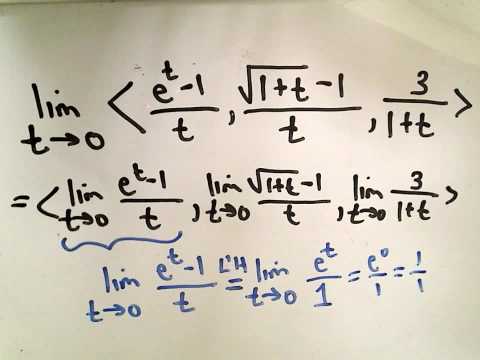 lim t→0 < (e^t-1)/t, (√(1+t) -1)/t, 3/(1+t) >
= < lim t→0 (e^t-1)/t, lim t→0 (√(1+t) -1)/t, lim t→0 3/(1+t) >
lim t→0 (e^t-1)/t L'H= lim t→0 e^t/1 = e^0/1 = 1/1